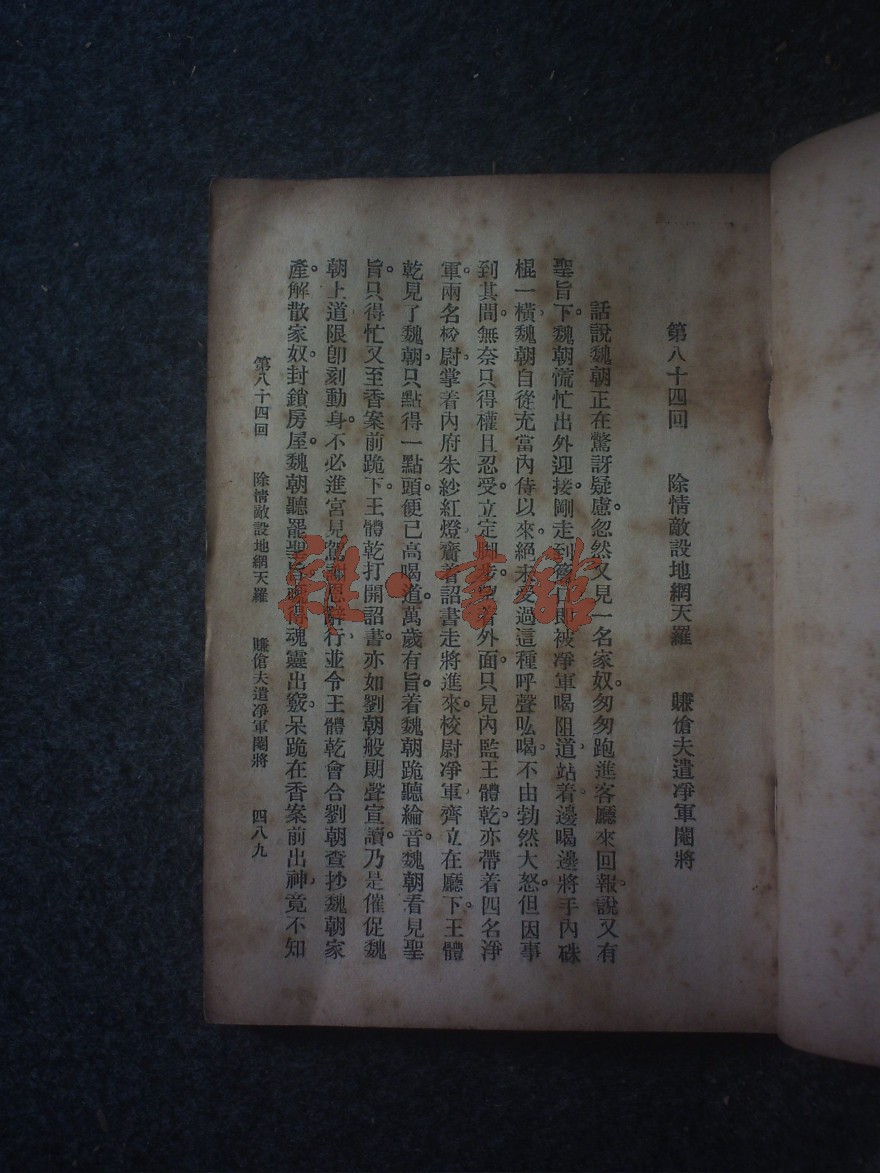 第八十四回　除情敵設地網天羅　賺傖夫遣凈軍閹將
話說魏朝正在驚訝疑慮。忽然又見一名家奴。匆匆跑進客廳來回報。說又有
聖旨下。魏朝慌忙出外迎接。剛走到即被凈軍喝阻道、站着邊喝邊將手內硃
棍一橫、魏朝自從充當內侍以來。絕未受過這種呼聲吆喝。不由勃然大怒。但因事
到其間。無奈只得權且忍受。立定脚步。着外面。只見內監王體乾。亦帶着四名淨
軍。兩名校尉。掌着內府朱紗紅燈。齎着詔書。走將進來。校尉凈軍、齊立在廳下。王體
乾見了魏朝。只點得一點頭。便已高喝道。萬歲有旨。着魏朝跪聽綸音。魏朝看見聖
旨。只得忙又至香案前跪下。王體乾打開詔書。亦如劉朝般朗聲宣讀。乃是催促魏
朝上道、限卽刻動身。不必進宮見駕謝恩辭行、並令王體乾會合劉朝查抄魏朝家
產。解散家奴。封鎖房屋。魏朝聽罷聖旨。得魂靈出竅、呆跪在香案前出神、竟不知
第八十四回　除情敵設地網天羅　賺傖夫遣凈軍閹將　四八九
雜·書館